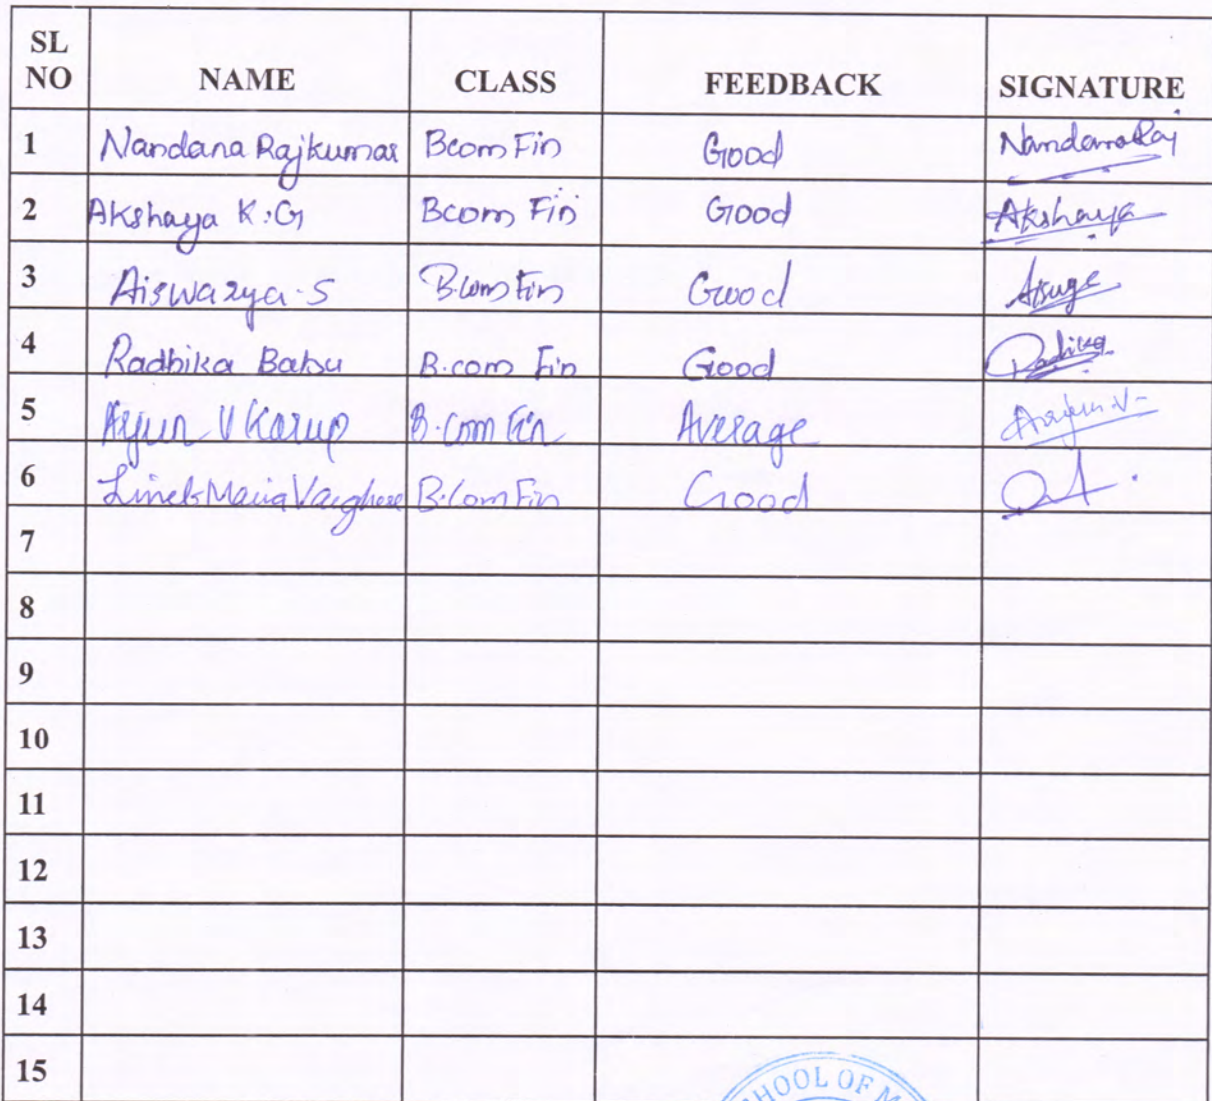 SL NO NAME CLASS FEEDBACK SIGNATURE
1 Nandana Rajkumar Bcom Fin Good NandanaRaj
2 Akshaya K.G Bcom Fin Good Akshaya
3 Aiswarya.S B.com Fin Good
4 Radhika Babu B.com Fin Good
5 Arjun V Karup B.Com Fin Average
6 Maria Varghese B.Com Fin Good
7
8
9
10
11
12
13
14
15
HOOL OF M